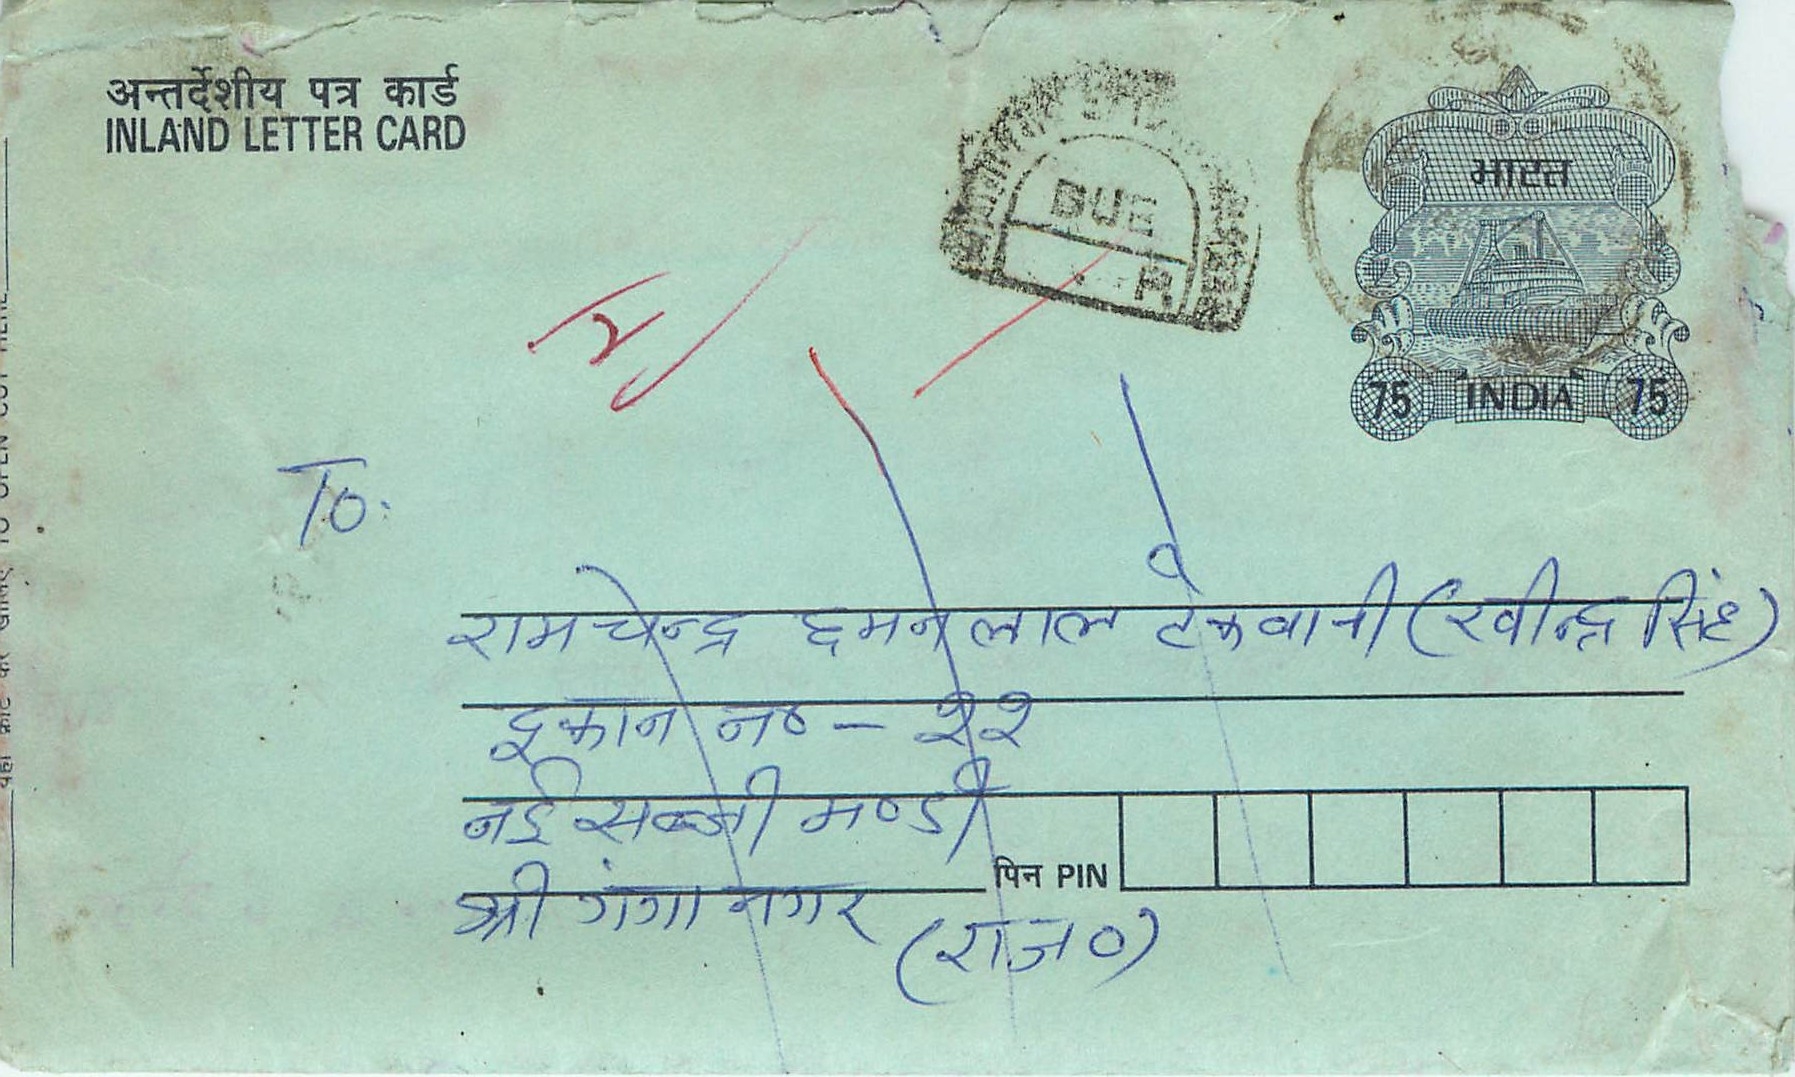 अन्तर्देशीय पत्र कार्ड
INLAND LETTER CARD
DUE
P.
भारत
75 INDIA 75
To:
रामचेन्द्र छमनलाल टेकवानी (रवीन्द्र सिंह)
दुकान न०- २२
नई सब्जी मण्डी
पिन PIN
श्री गंगा नगर
(राज०)
TO OPEN CUT HERE